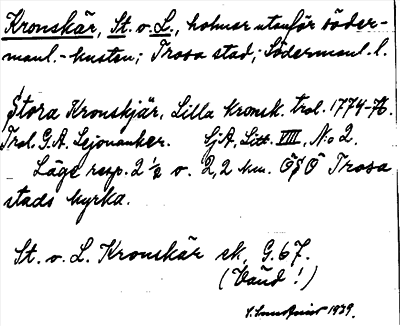 Kronskär, St. o. L., holmar utanför söder-
manl.-kusten; Trosa stad; Södermanl. l.
Stora Kronskjär, Lilla Kronsk. trol. 1774-76.
Trol. G.A. Lejonanker. SjA, Litt. VIII, No 2.
Läge resp. 2 1/2 o. 2,2 km. ÖSÖ Trosa
stads kyrka.
St. o. L. Kronskär ek, G. 67.
(Vänd!)
1939.